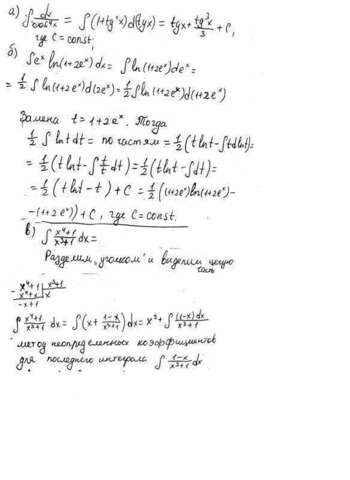 а) ∫ dx/cos⁴x = ∫(1+tg²x)d(tgx) = tgx + tg³x/3 + C,
где C = const.
б) ∫eˣ ln(1+2eˣ)dx = ∫ln(1+2eˣ)deˣ =
= 1/2 ∫ln(1+2eˣ)d(2eˣ) = 1/2 ∫ln(1+2eˣ)d(1+2eˣ)
Замена t = 1+2eˣ. Тогда
1/2 ∫ln t dt = по частям = 1/2 (t ln t - ∫t d ln t) =
= 1/2 (t ln t - ∫ t/t dt) = 1/2 (t ln t - ∫dt) =
= 1/2 (t ln t - t) + C = 1/2 ((1+2eˣ)ln(1+2eˣ) -
-(1+2eˣ)) + C, где C = const.
в) ∫ (x⁴+1)/(x³+1) dx =
Разделим "уголком" и выделим целую
часть
- x⁴+1 | x³+1
x⁴+x | x
-x+1
∫ (x⁴+1)/(x³+1) dx = ∫(x + (1-x)/(x³+1))dx = x² + ∫ (1-x)dx/(x³+1)
метод неопределенных коэффициентов
для последнего интеграла ∫ (1-x)/(x³+1) dx